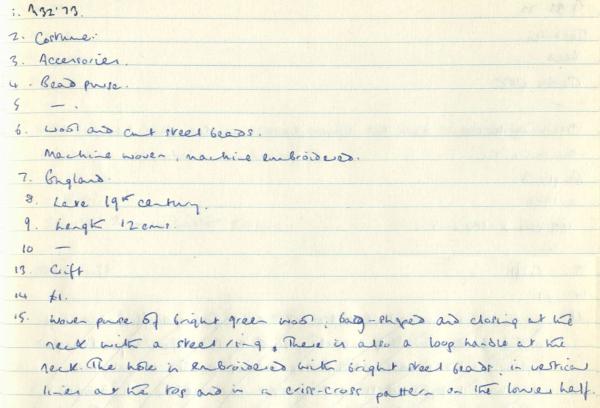 1. R32'73.
2. Costume.
3. Accessories.
4. Bead purse.
5 —.
6. Wool and cut steel beads.
Machine woven, machine embroidered.
7. England.
8. Late 19th century.
9. Length 12 cms.
10 —
13. Gift
14 £1.
15. Woven purse of bright green wool, bag-shaped and closing at the
neck with a steel ring. There is also a loop handle at the
neck. The whole is embroidered with bright steel beads, in vertical
lines at the top and in a criss-cross pattern on the lower half.